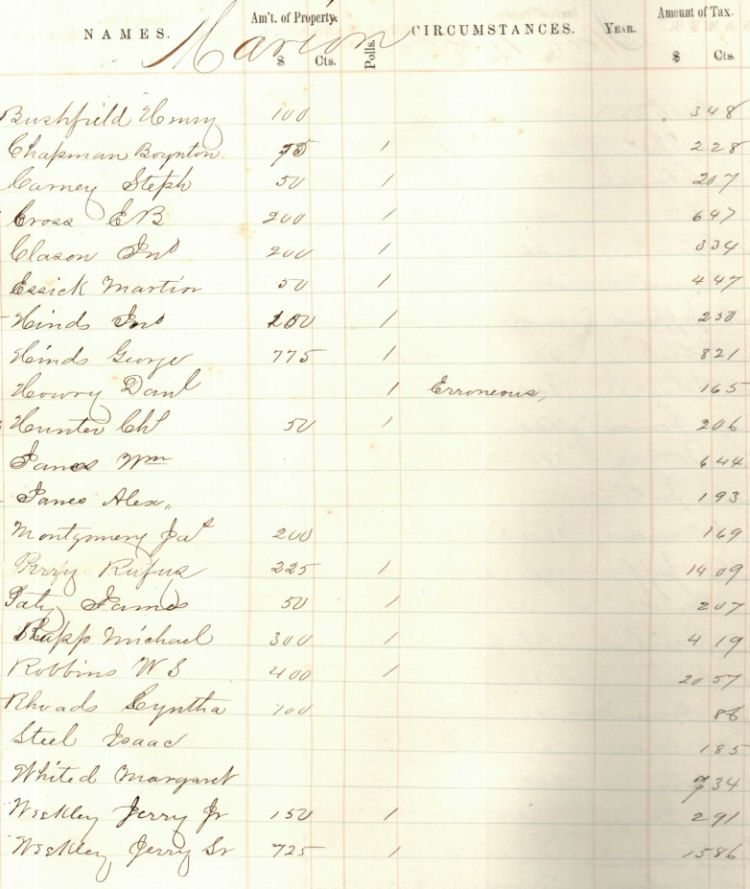 NAMES. Am't. of Property. Polls. CIRCUMSTANCES. YEAR. Amount of Tax.
Marion
$ Cts. $ Cts.
Bushfield Henry 100 3 48
Chapman Boynton 75 1 2 28
Carney Steph 50 1 2 07
Cross E B 200 1 6 47
Clason Jno 200 1 3 34
Essick Martin 50 1 4 47
Hinds Jno 200 1 2 50
Hinds George 775 1 8 21
Howry Danl 1 Erroneous, 1 65
Hunter Chs 50 1 2 06
Janes Wm 6 44
Janes Alex, 1 93
Montgomery Jas 200 1 69
Perry Rufus 225 1 14 09
Paty James 50 1 2 07
Rupp Michael 300 1 4 19
Robbins W S 400 1 20 57
Rhoads Cyntha 100 86
Steel Isaac 1 85
Whited Margaret 7 34
Weekley Jerry Jr 150 1 2 91
Weekley Jerry Sr 725 1 15 86